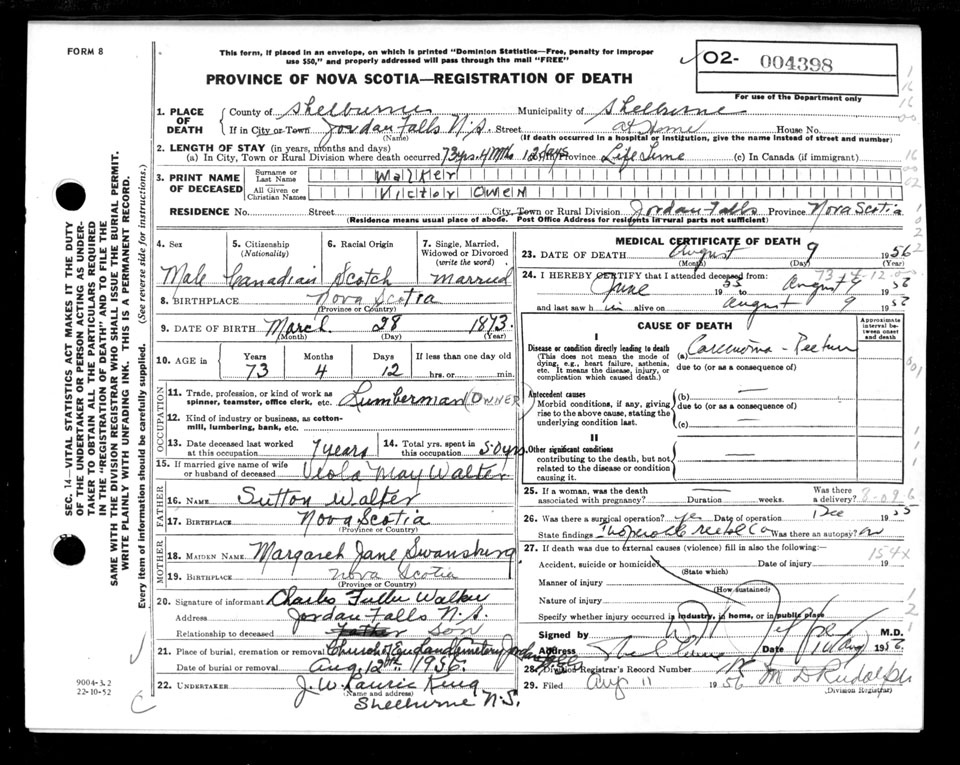 FORM 8
This form, if placed in an envelope, on which is printed "Dominion Statistics—Free, penalty for improper
use $50," and properly addressed will pass through the mail "FREE"
PROVINCE OF NOVA SCOTIA—REGISTRATION OF DEATH
02- 004398
For use of the Department only
1. PLACE OF DEATH
County of Shelburne Municipality of Shelburne
If in City or Town Jordan Falls N.S. Street at Home House No.
(Name) (If death occurred in a hospital or institution, give the name instead of street and number)
2. LENGTH OF STAY (in years, months and days)
(a) In City, Town or Rural Division where death occurred 73 yrs. 4 Mths 12 days Province Life Time (c) In Canada (if immigrant)
3. PRINT NAME OF DECEASED
Surname or Last Name Walker
All Given or Christian Names Victor Owen
RESIDENCE No. Street City, Town or Rural Division Jordan Falls Province Nova Scotia
(Residence means usual place of abode. Post Office Address for residents in rural parts not sufficient)
4. Sex
Male
5. Citizenship
(Nationality)
Canadian
6. Racial Origin
Scotch
7. Single, Married, Widowed or Divorced
(write the word)
Married
8. BIRTHPLACE Nova Scotia
(Province or Country)
9. DATE OF BIRTH March 28 1873
(Month) (Day) (Year)
10. AGE in
Years Months Days If less than one day old
73 4 12 hrs. or min.
OCCUPATION
11. Trade, profession, or kind of work as
spinner, teamster, office clerk, etc. Lumberman (OWNER)
12. Kind of industry or business, as cotton-
mill, lumbering, bank, etc.
13. Date deceased last worked
at this occupation 7 years
14. Total yrs. spent in
this occupation 50 yrs
15. If married give name of wife
or husband of deceased Viola May Walker
FATHER
16. NAME Sutton Walker
17. BIRTHPLACE Nova Scotia
(Province or Country)
MOTHER
18. MAIDEN NAME Margaret Jane Swansburg
19. BIRTHPLACE Nova Scotia
(Province or Country)
20. Signature of informant Charles Fuller Walker
Address Jordan Falls N.S.
Relationship to deceased Father Son
21. Place of burial, cremation or removal Church of England Cemetery Jordan Falls
Date of burial or removal Aug. 12th 1956
22. UNDERTAKER J. W. Laurie King
(Name and address)
Shelburne N.S.
MEDICAL CERTIFICATE OF DEATH
23. DATE OF DEATH August 9 1956
(Month) (Day) (Year)
24. I HEREBY CERTIFY that I attended deceased from: 73-4-12
June 1955 to August 9 1956
and last saw him alive on August 9 1956
CAUSE OF DEATH
Approximate interval between onset and death
I
Disease or condition directly leading to death
(This does not mean the mode of dying, e.g., heart failure, asthenia, etc. It means the disease, injury, or complication which caused death.)
(a) Carcinoma - Rectum
due to (or as a consequence of)
Antecedent causes
Morbid conditions, if any, giving rise to the above cause, stating the underlying condition last.
(b)
due to (or as a consequence of)
(c)
II
Other significant conditions
contributing to the death, but not related to the disease or condition causing it.
25. If a woman, was the death
associated with pregnancy? Duration weeks. Was there a delivery?
26. Was there a surgical operation? yes Date of operation Dec 1955
State findings Inoperable Was there an autopsy? no
27. If death was due to external causes (violence) fill in also the following:— 154X
Accident, suicide or homicide? Date of injury 19
(State which)
Manner of injury
(How sustained)
Nature of injury
Specify whether injury occurred in industry, in home, or in public place
Signed by M.D.
Address Shelburne Date 10 Aug 1956.
28. Division Registrar's Record Number
29. Filed Aug 11 1956 M D Rudolph
(Division Registrar)
SEC. 14—VITAL STATISTICS ACT MAKES IT THE DUTY
OF THE UNDERTAKER OR PERSON ACTING AS UNDER-
TAKER TO OBTAIN ALL THE PARTICULARS REQUIRED
IN THE "REGISTRATION OF DEATH" AND TO FILE THE
SAME WITH THE DIVISION REGISTRAR WHO SHALL ISSUE THE BURIAL PERMIT.
WRITE PLAINLY WITH UNFADING INK. THIS IS A PERMANENT RECORD.
Every item of information should be carefully supplied. (See reverse side for instructions.)
9004-3.2
22-10-52